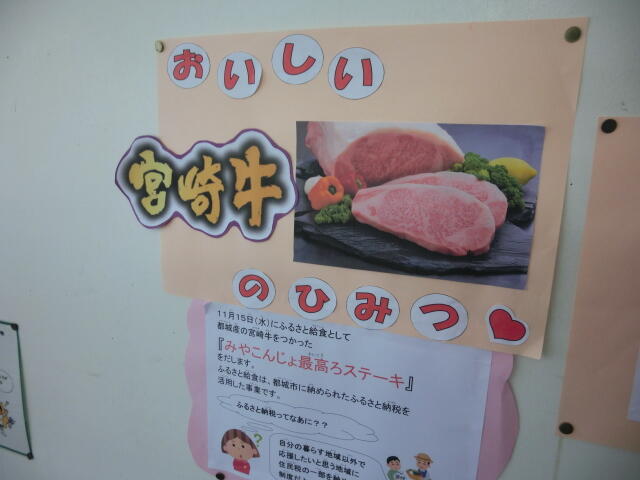 おいしい
宮崎牛
のひみつ
11月15日(水)にふるさと給食として
都城産の宮崎牛をつかった
『みやこんじょ最高ろステーキ』
をだします。
ふるさと給食は、都城市に納められたふるさと納税を
活用した事業です。
ふるさと納税ってなあに??
?
自分の暮らす地域以外で
応援したいと思う地域に
住民税の一部を